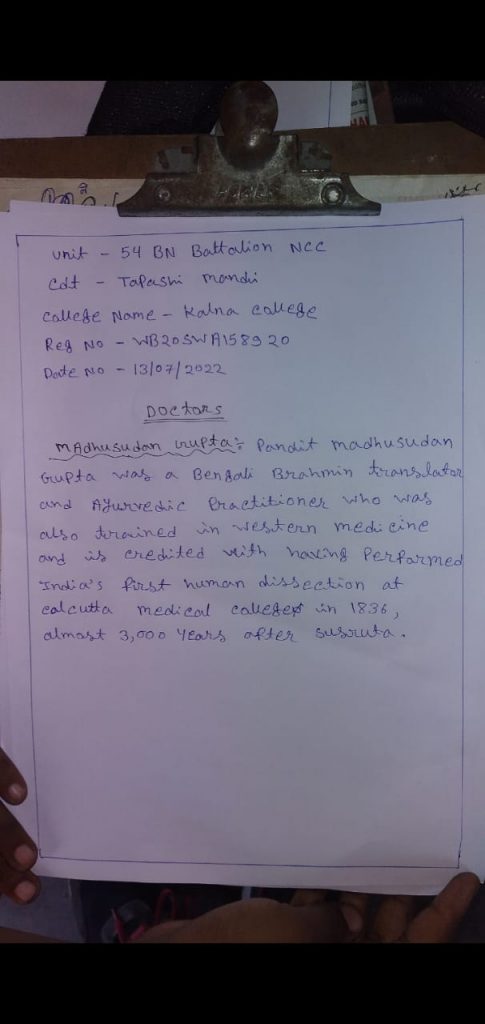 Unit - 54 BN Battalion NCC
Cdt - Tapashi Mandi
College Name - Kalna College
Reg No - WB20SWA158920
Date No - 13/07/2022
Doctors
Madhusudan Gupta:- Pandit madhusudan
Gupta was a Bengali Brahmin translator
and Ayurvedic Practitioner who was
also trained in western medicine
and is credited with having Performed
India's first human dissection at
calcutta medical college in 1836,
almost 3,000 Years after susruta.